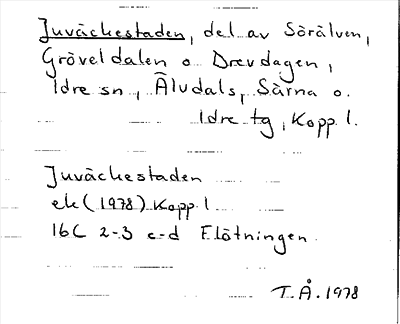 Juväckestaden, del av Sörälven,
Gröveldalen o Drevdagen,
Idre sn, Älvdals, Särna o.
Idre tg, Kopp l.
Juväckestaden
ek (1978) Kopp l
16C 2-3 c-d Flötningen
T.Å. 1978